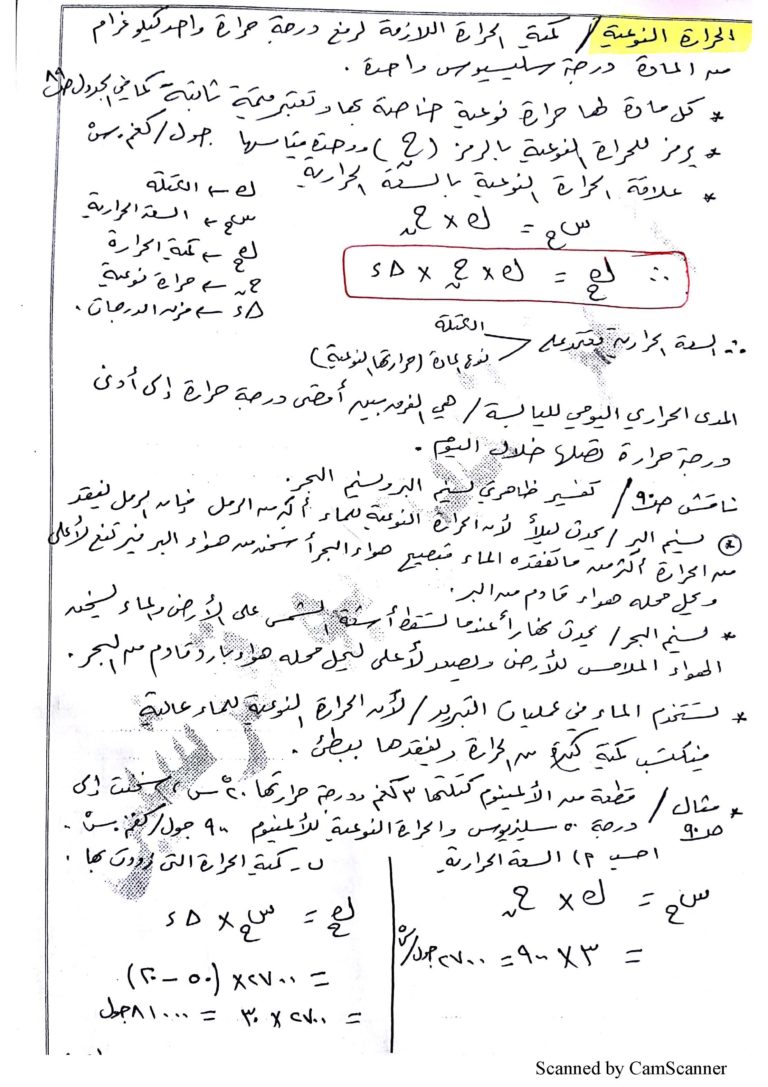 الحرارة النوعية / كمية الحرارة اللازمة لرفع درجة حرارة واحد كيلوغرام
من المادة درجة سليسيوس واحدة .
* كل مادة لها حرارة نوعية خاصة بها وتعتبر قيمة ثابتة كما في الجدول ص٨٩
* يرمز للحرارة النوعية بالرمز (حن) ووحدة قياسها جول/كغم.سْ
* علاقة الحرارة النوعية بالسعة الحرارية
سح = ك × حن
∴ كح = ك × حن × Δد
ك ← الكتلة
سح ← السعة الحرارية
كح ← كمية الحرارة
حن ← حرارة نوعية
Δد ← فرق الدرجات .
∴ السعة الحرارية تعتمد على
الكتلة
نوع المادة (حرارتها النوعية)
المدى الحراري اليومي لليابسة / هي الفرق بين أقصى درجة حرارة إلى أدنى
درجة حرارة تصلها خلال اليوم .
ناقش ص٩٠ / تفسير ظاهرتي نسيم البر ونسيم البحر.
* نسيم البر / يحدث ليلاً لأن الحرارة النوعية للماء أكبر من الرمل فإن الرمل يفقد
من الحرارة أكثر من ما تفقده الماء فيصبح هواء البحر أسخن من هواء البر فيرتفع لأعلى
ويحل محله هواء قادم من البر.
* نسيم البحر / يحدث نهاراً عندما تسقط أشعة الشمس على الأرض والماء يسخن
الهواء الملامس للأرض ويصعد لأعلى ليحل محله هواء بارد قادم من البحر .
* تستخدم الماء في عمليات التبريد / لأن الحرارة النوعية للماء عالية
فيكتسب كمية كبيرة من الحرارة ويفقدها ببطئ .
* مثال ص٩٠ / قطعة من الألمنيوم كتلتها ٣ كغم ودرجة حرارتها ٢٠ْ س ، سخنت إلى
درجة ٥٠ سلزيوس والحرارة النوعية للألمنيوم ٩٠٠ جول/كغم.سْ .
احسب ٢) السعة الحرارية
سح = ك × حن
= ٣ × ٩٠٠ = ٢٧٠٠ جول/سْ
ب- كمية الحرارة التي زودت بها .
كح = سح × Δد
= ٢٧٠٠ × (٥٠ - ٢٠)
= ٢٧٠٠ × ٣٠ = ٨١٠٠٠ جول
Scanned by CamScanner